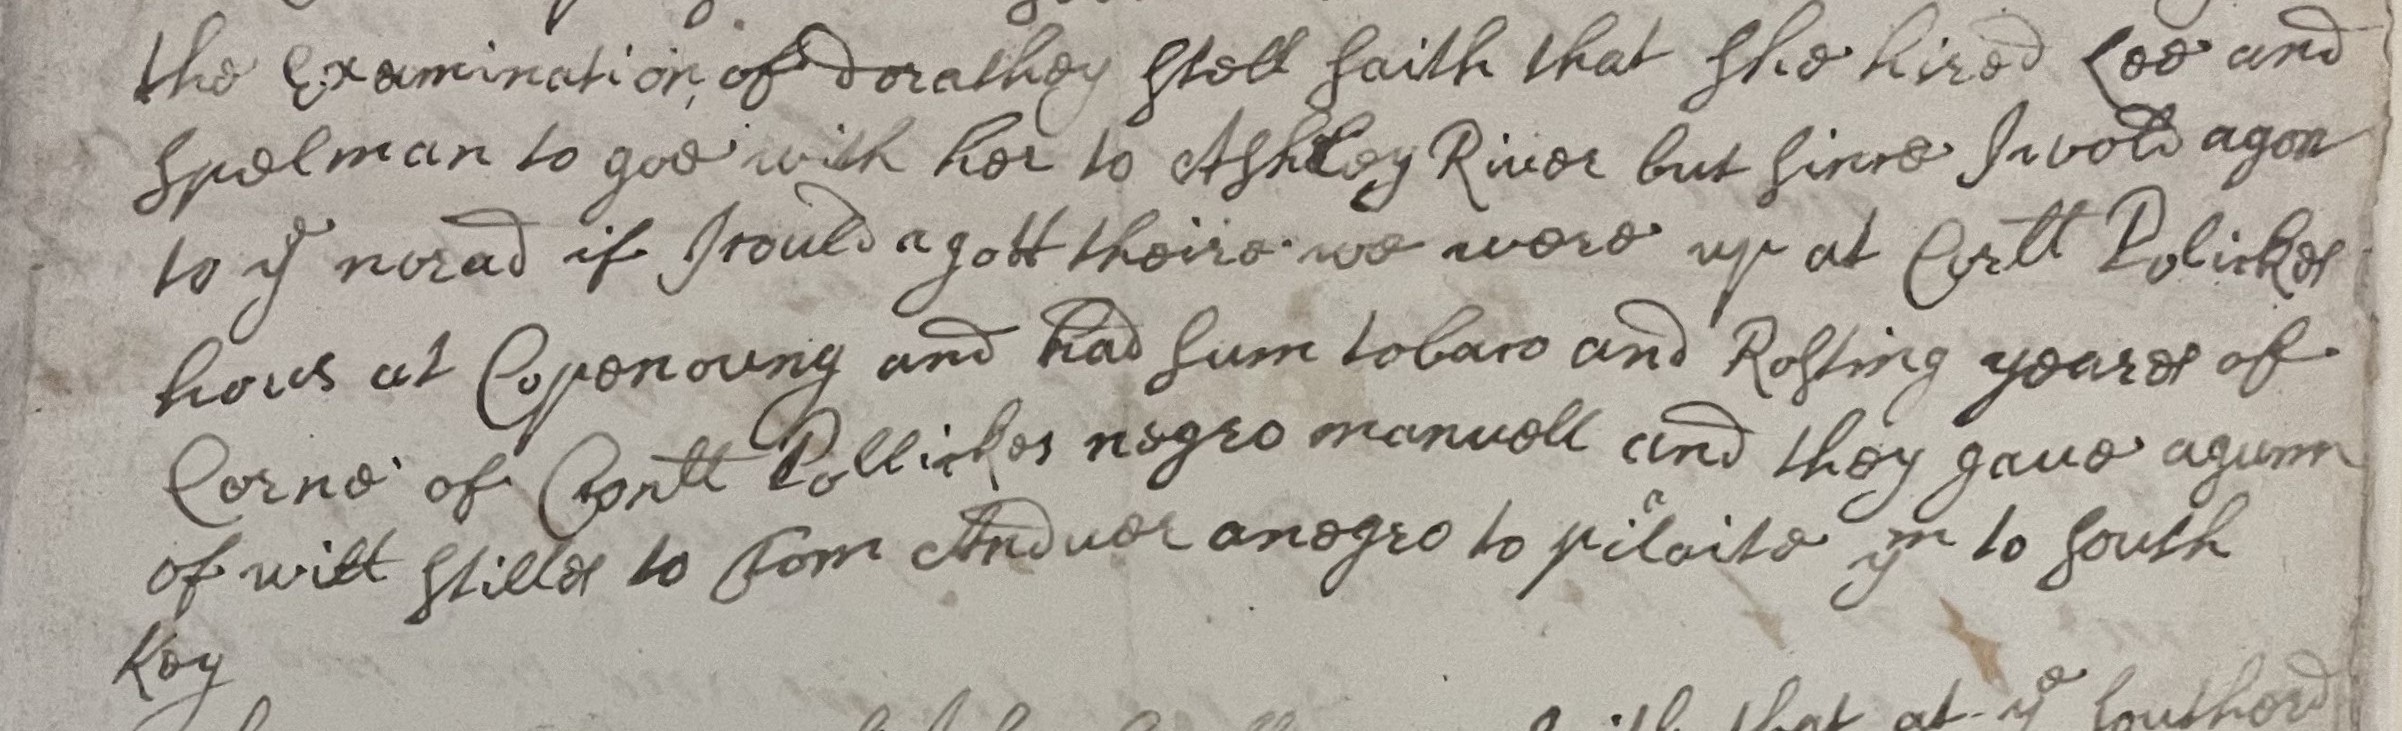 the Examination of dorathey Stell saith that she hired Lee and
Spelman to goe with her to Ashley River but since I wold agon
to ye norad if I could a gott theire we were up at Corll Polickes
hous at Copenoung and had sum tobaco and Rosting yeares of
Corne of Cornll Pollickes negro manuell and they gave agunn
of will Stilles to Tom Anduer anegro to pilaite ym to South
Key
that at ye Southerd